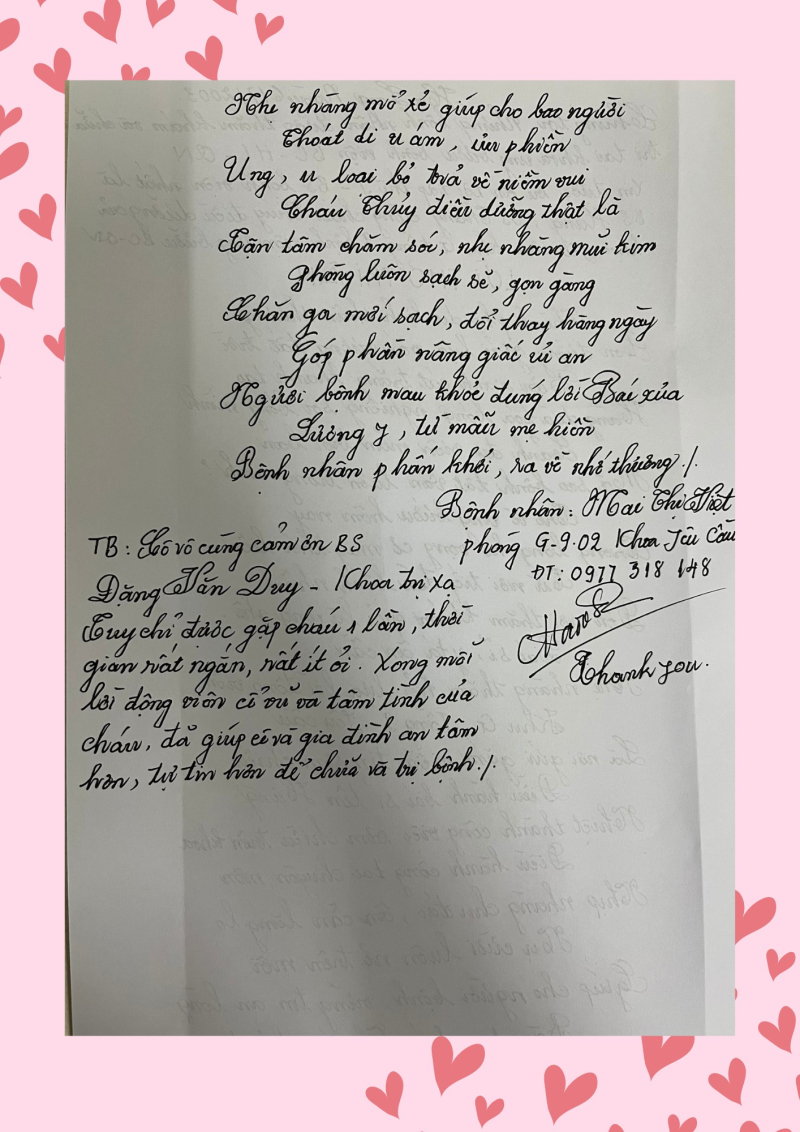 Nhẹ nhàng mổ xẻ giúp cho bao người
Thoát di u ám, ưu phiền
Ung, u loại bỏ trả về niềm vui
Cháu Thủy điều dưỡng thật là
Tận tâm chăm sóc, nhẹ nhàng mũi kim
Phòng luôn sạch sẽ, gọn gàng
Chăn ga mới sạch, đổi thay hàng ngày
Góp phần nâng giấc ủi an
Người bệnh mau khỏe đúng lời Bác xưa
Lương y, từ mẫu mẹ hiền
Bệnh nhân phấn khởi, ra về nhớ thương./.
Bệnh nhân: Mai Thị Việt
phòng G-9.02 Khoa Yêu Cầu
ĐT: 0977 318 148
Thank you.
TB: Cô vô cùng cảm ơn BS
Đặng Văn Duy - Khoa trị xạ
Tuy chỉ được gặp cháu 1 lần, thời
gian rất ngắn, rất ít ỏi. Xong mỗi
lời động viên cổ vũ và tâm tình của
cháu, đã giúp cô và gia đình an tâm
hơn, tự tin hơn để chữa và trị bệnh./.